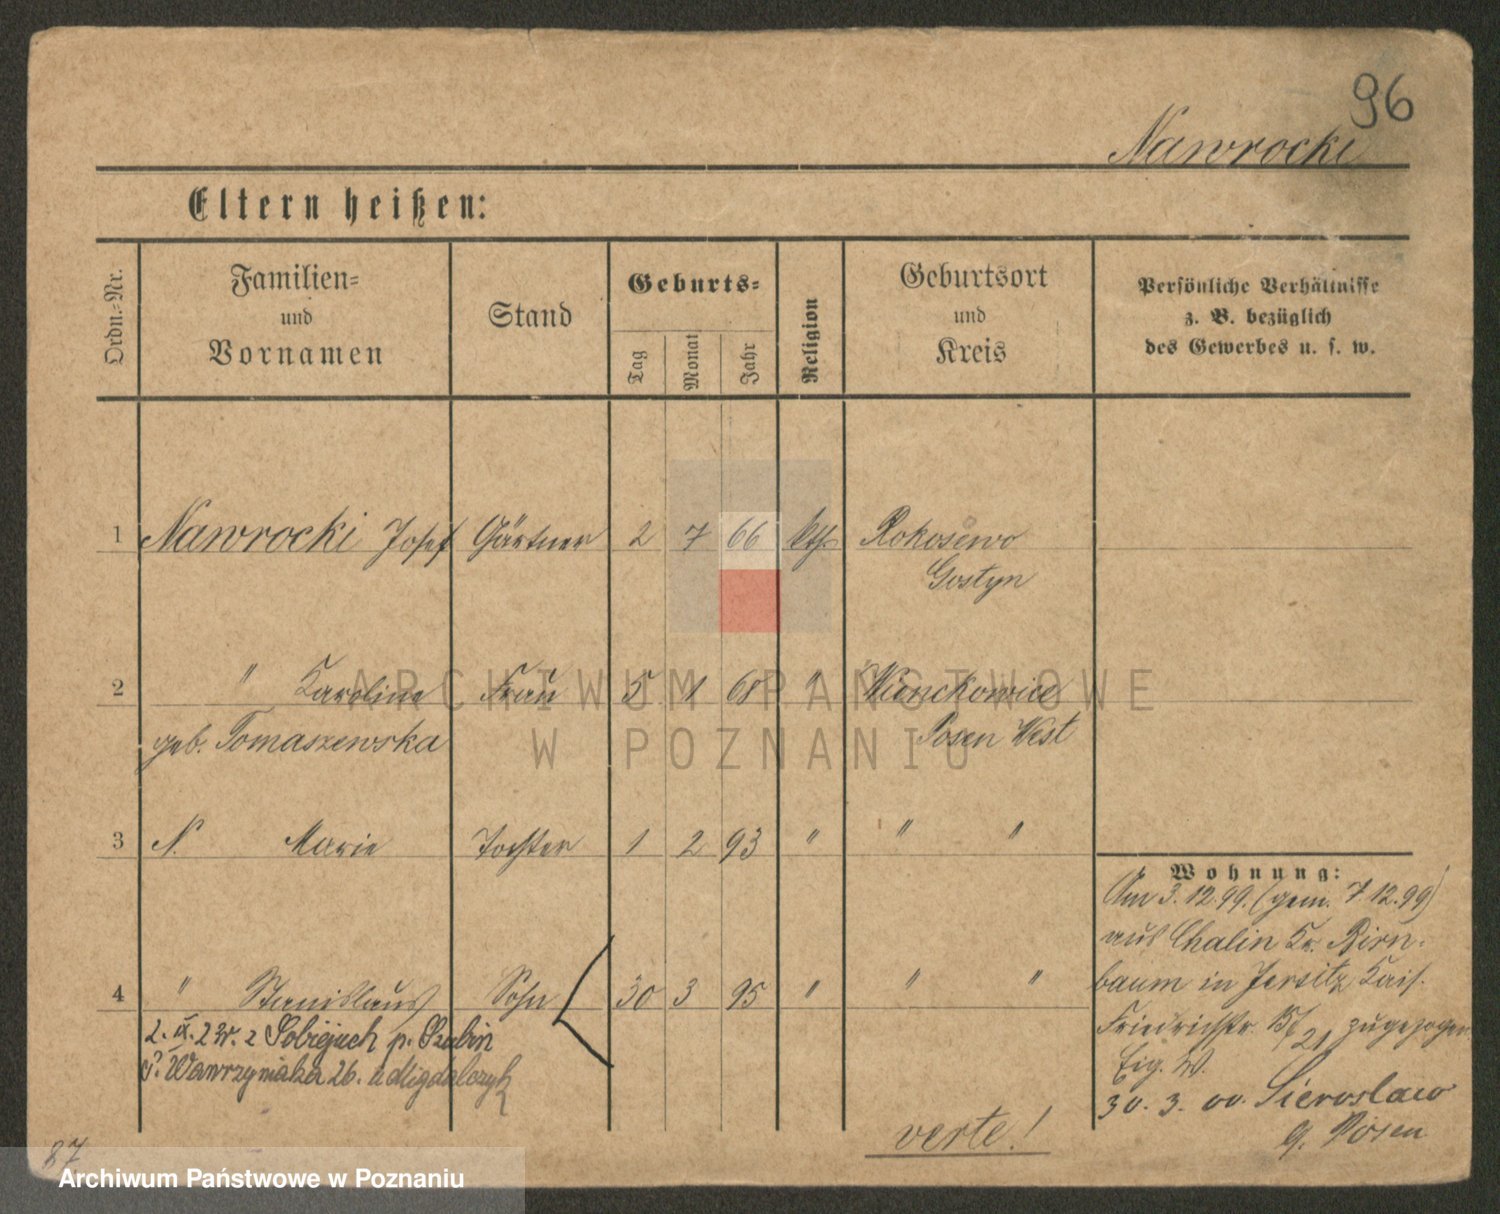 96
Nawrocki
Eltern heißen:
Ordn.-Nr.
Familien-
und
Vornamen
Stand
Geburts-
Tag
Monat
Jahr
Religion
Geburtsort
und
Kreis
Persönliche Verhältnisse
z. B. bezüglich
des Gewerbes u. s. w.
1 Nawrocki Josef Gärtner 2 7 66 kth. Rokosowo
Gostyn
2 " Karoline Frau 5 1 68 " Wienckowice
geb. Tomaszewska Posen West
3 N. Marie Tochter 1 2 93 " " "
4 " Stanislaus Sohn 30 3 95 " " "
2. IX. 23 r. z Sobiejuch p. Szubin
Wawrzyniaka 26. u Migdalczyk
Wohnung:
Am 3.12.99. (gem. 7.12.99)
aus Chalin Kr. Birn-
baum in Jersitz Kais.
Friedrichstr. zugezogen
Eig. W.
30. 3. 00. Sieroslaw
Posen
verte!
87
ARCHIWUM PAŃSTWOWE
W POZNANIU
Archiwum Państwowe w Poznaniu